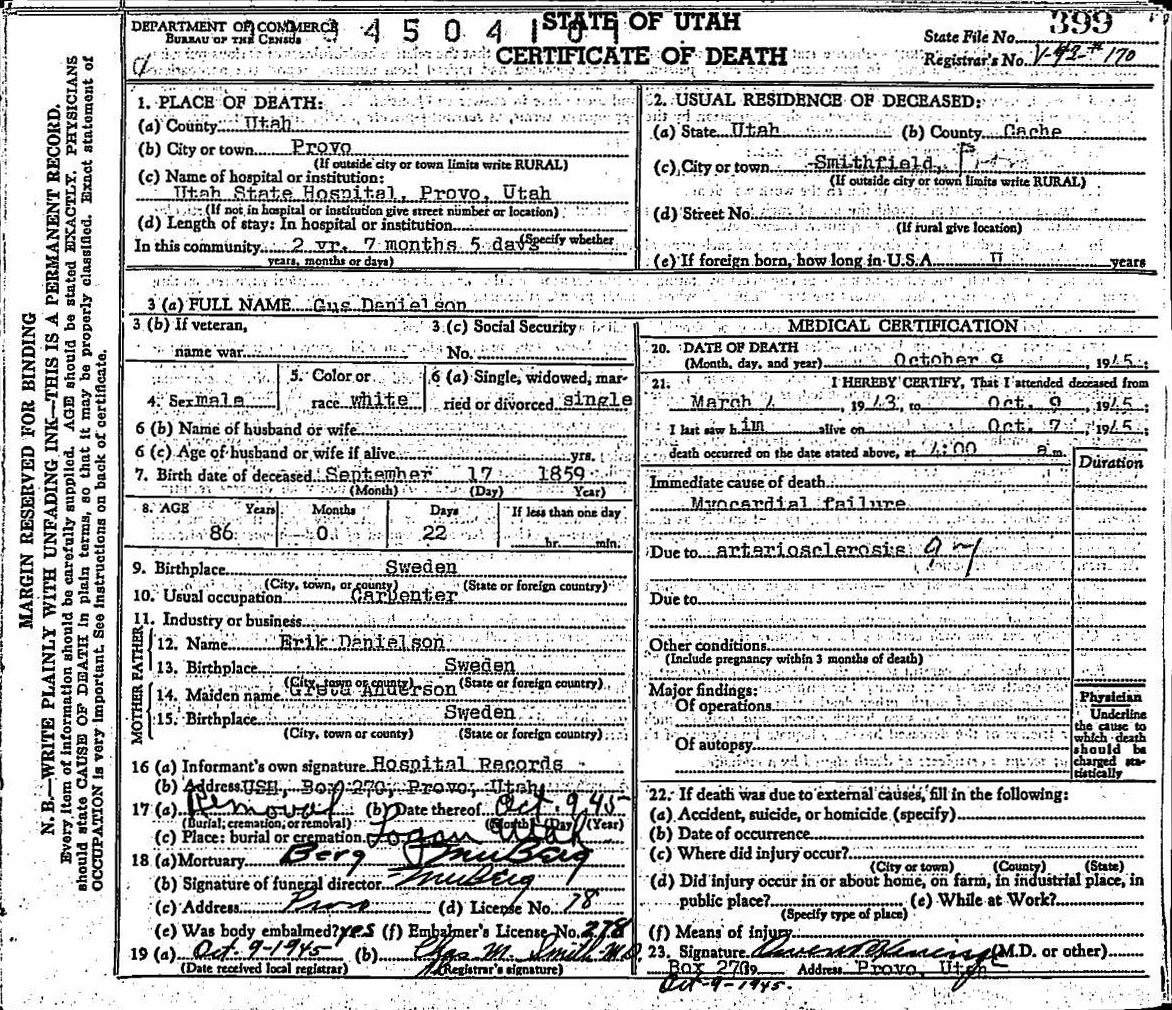 DEPARTMENT OF COMMERCE
BUREAU OF THE CENSUS
STATE OF UTAH
CERTIFICATE OF DEATH
399
State File No.
Registrar's No. V-43-#170
MARGIN RESERVED FOR BINDING
N. B.—WRITE PLAINLY WITH UNFADING INK—THIS IS A PERMANENT RECORD.
Every item of information should be carefully supplied. AGE should be stated EXACTLY. PHYSICIANS
should state CAUSE OF DEATH in plain terms, so that it may be properly classified. Exact statement of
OCCUPATION is very important. See instructions on back of certificate.
1. PLACE OF DEATH:
(a) County Utah
(b) City or town Provo
(If outside city or town limits write RURAL)
(c) Name of hospital or institution:
Utah State Hospital, Provo, Utah
(If not in hospital or institution give street number or location)
(d) Length of stay: In hospital or institution
In this community 2 yr. 7 months 5 days (Specify whether
years, months or days)
2. USUAL RESIDENCE OF DECEASED:
(a) State Utah (b) County Cache
(c) City or town Smithfield,
(If outside city or town limits write RURAL)
(d) Street No.
(If rural give location)
(e) If foreign born, how long in U.S.A. U years
3 (a) FULL NAME Gus Danielson
3 (b) If veteran,
name war
3 (c) Social Security
No.
4. Sex male
5. Color or
race white
6 (a) Single, widowed, mar-
ried or divorced single
6 (b) Name of husband or wife
6 (c) Age of husband or wife if alive yrs.
7. Birth date of deceased September 17 1859
(Month) (Day) Year)
8. AGE Years Months Days If less than one day
86 0 22 hr. min.
9. Birthplace Sweden
(City, town, or county) (State or foreign country)
10. Usual occupation Carpenter
11. Industry or business
FATHER
12. Name Erik Danielson
13. Birthplace Sweden
(City, town or county) (State or foreign country)
MOTHER
14. Maiden name Greta Anderson
15. Birthplace Sweden
(City, town or county) (State or foreign country)
16 (a) Informant's own signature Hospital Records
(b) Address USH, Box 270, Provo, Utah
17 (a) Removal (b) Date thereof Oct. 9 45
(Burial, cremation, or removal) (Month) (Day) (Year)
(c) Place: burial or cremation Logan Utah
18 (a) Mortuary Berg
(b) Signature of funeral director
(c) Address Provo (d) License No. 78
(e) Was body embalmed? yes (f) Embalmer's License No. 278
19 (a) Oct. 9-1945 (b) Chas M. Smith M.D.
(Date received local registrar) (Registrar's signature)
MEDICAL CERTIFICATION
20. DATE OF DEATH
(Month, day, and year) October 9, 1945;
21. I HEREBY CERTIFY, That I attended deceased from
March 4, 1943, to Oct. 9, 1945;
I last saw him alive on Oct. 7, 1945;
death occurred on the date stated above, at 4:00 a.m.
Duration
Immediate cause of death
Myocardial failure
Due to arteriosclerosis
Due to
Other conditions
(Include pregnancy within 3 months of death)
Major findings:
Of operations
Of autopsy
Physician
Underline
the cause to
which death
should be
charged sta-
tistically
22. If death was due to external causes, fill in the following:
(a) Accident, suicide, or homicide (specify)
(b) Date of occurrence
(c) Where did injury occur?
(City or town) (County) (State)
(d) Did injury occur in or about home, on farm, in industrial place, in
public place? (e) While at Work?
(Specify type of place)
(f) Means of injury
23. Signature (M.D. or other)
Box 270 Address Provo, Utah
Oct-9-1945.